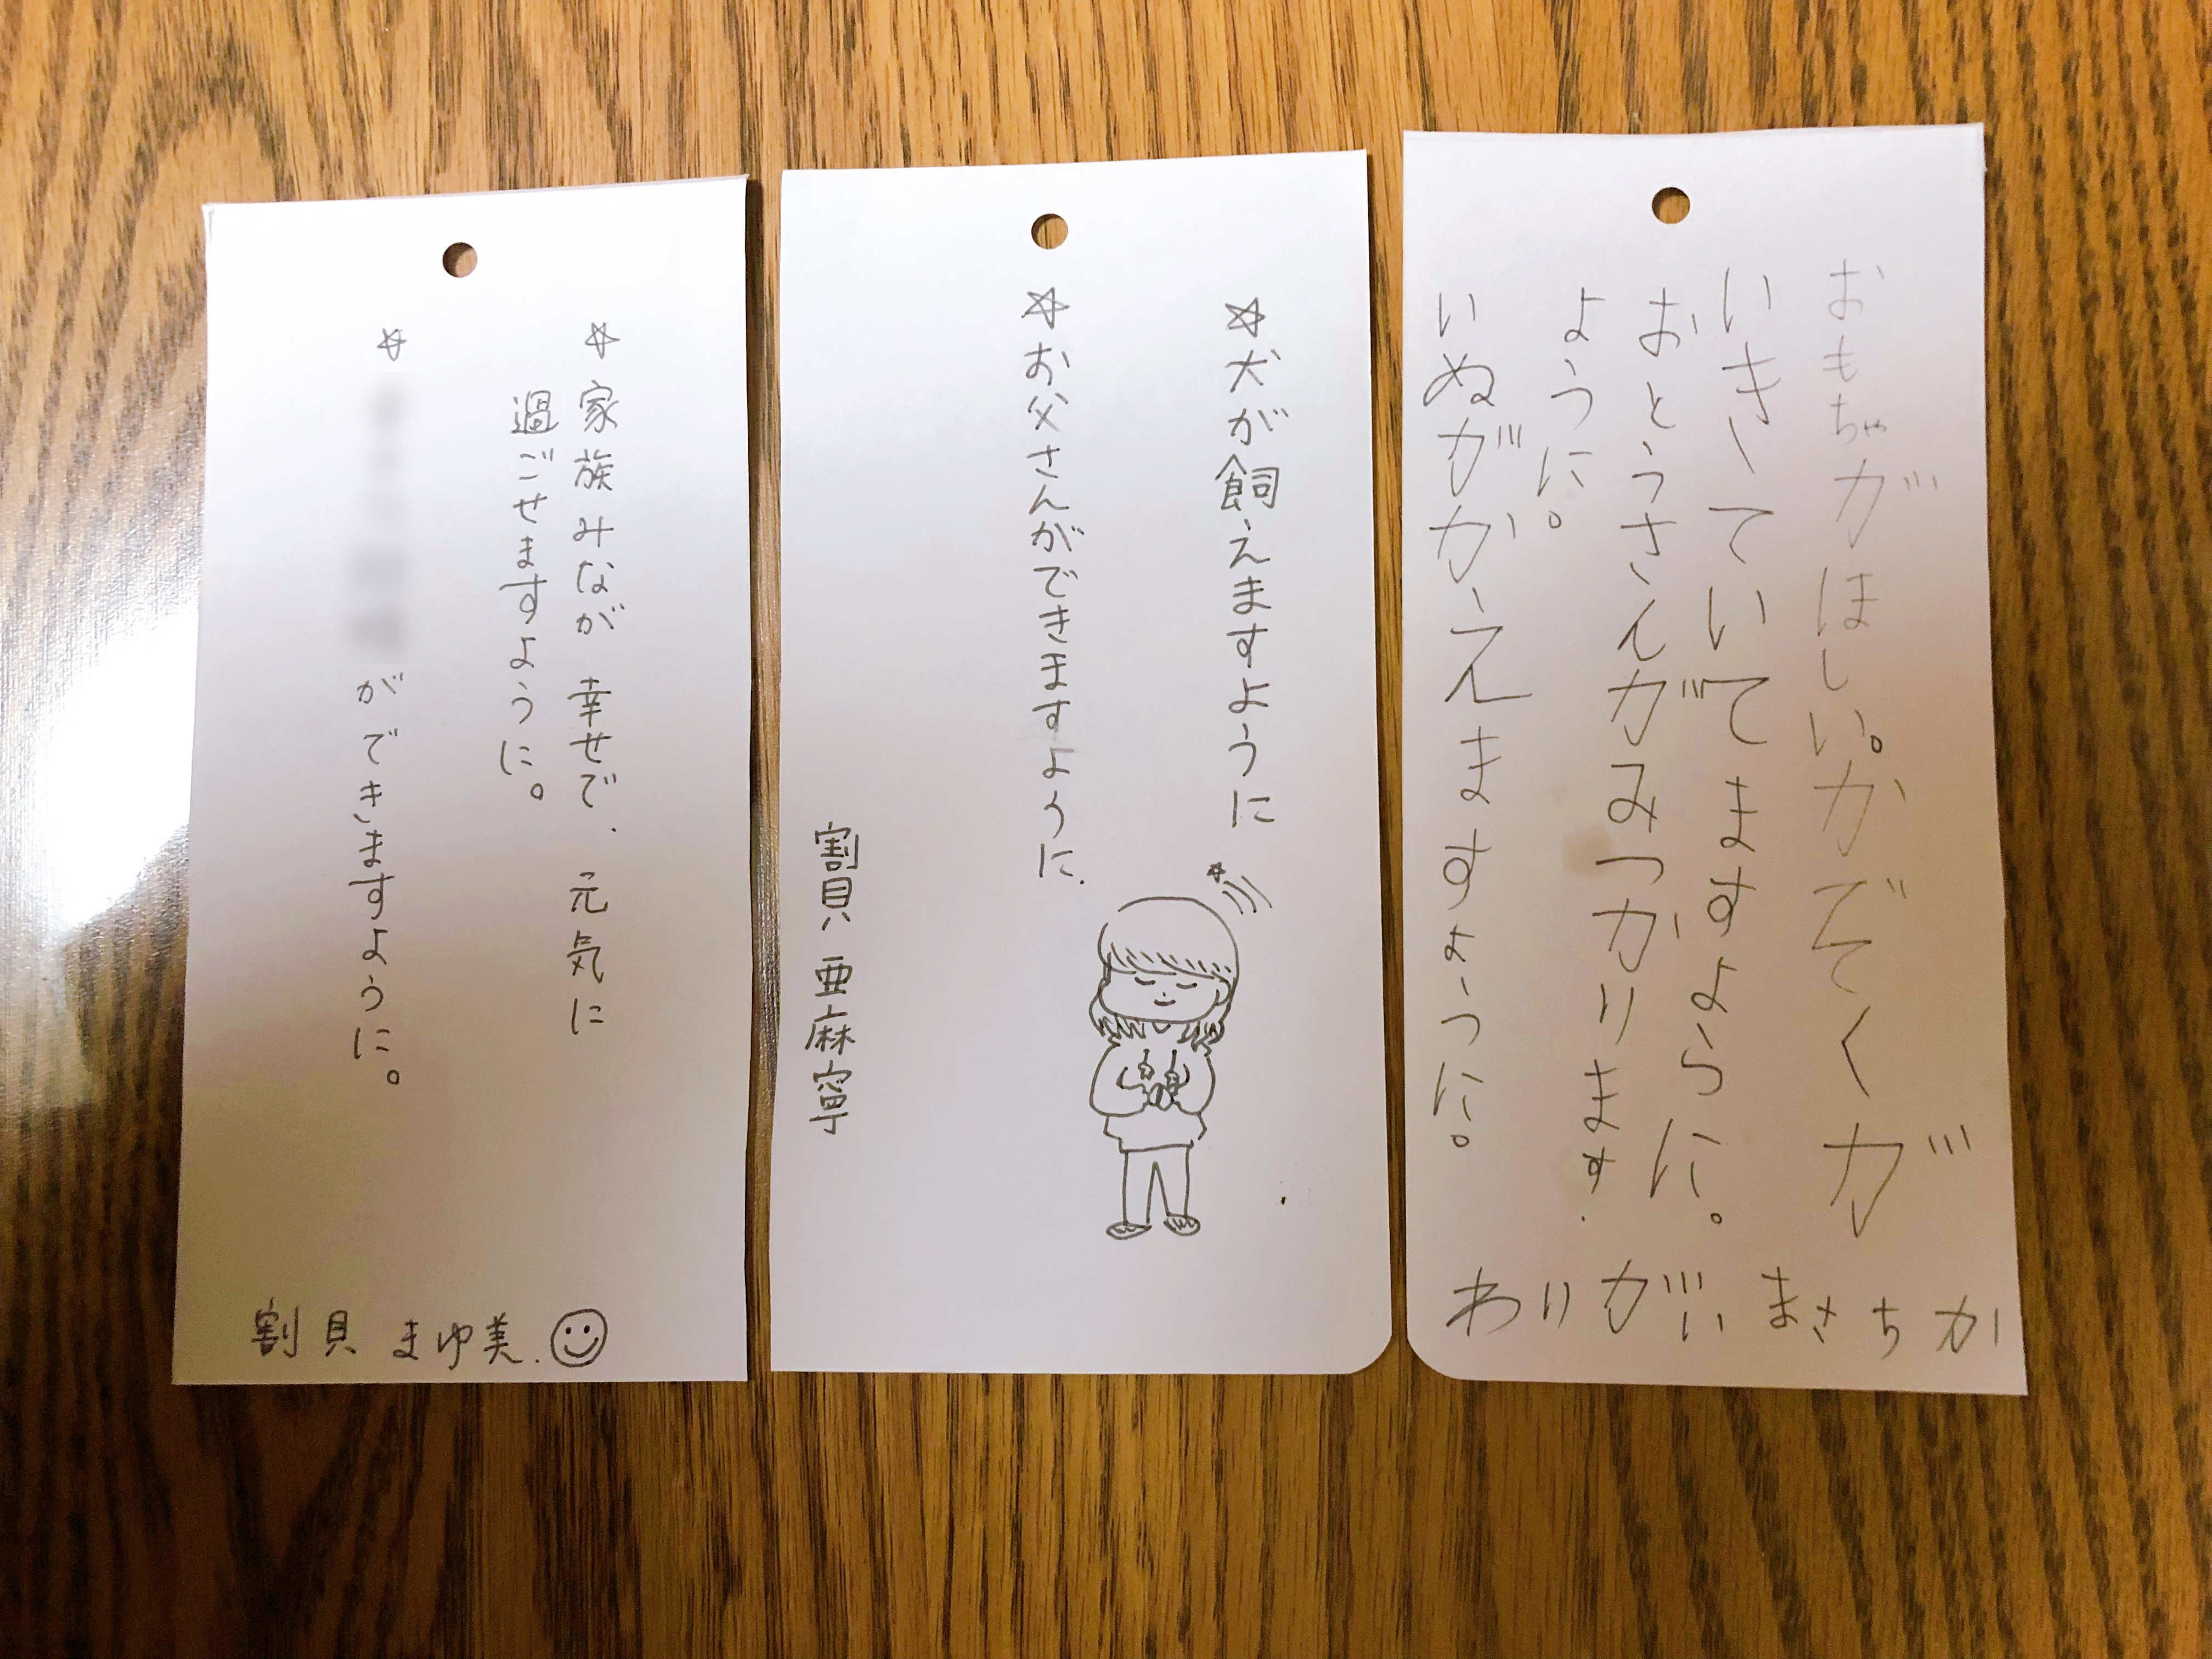 ☆家族みなが 幸せで、元気に
過ごせますように。
☆
ができますように。
割貝 まゆ美.
☆犬が飼えますように
☆お父さんができますように.
割貝 亜麻寧
おもちゃがほしい。かでくが
いきていてますように。
おとうさんがみつかります.
ように。
いぬがかえますように。
わりがいまさちか